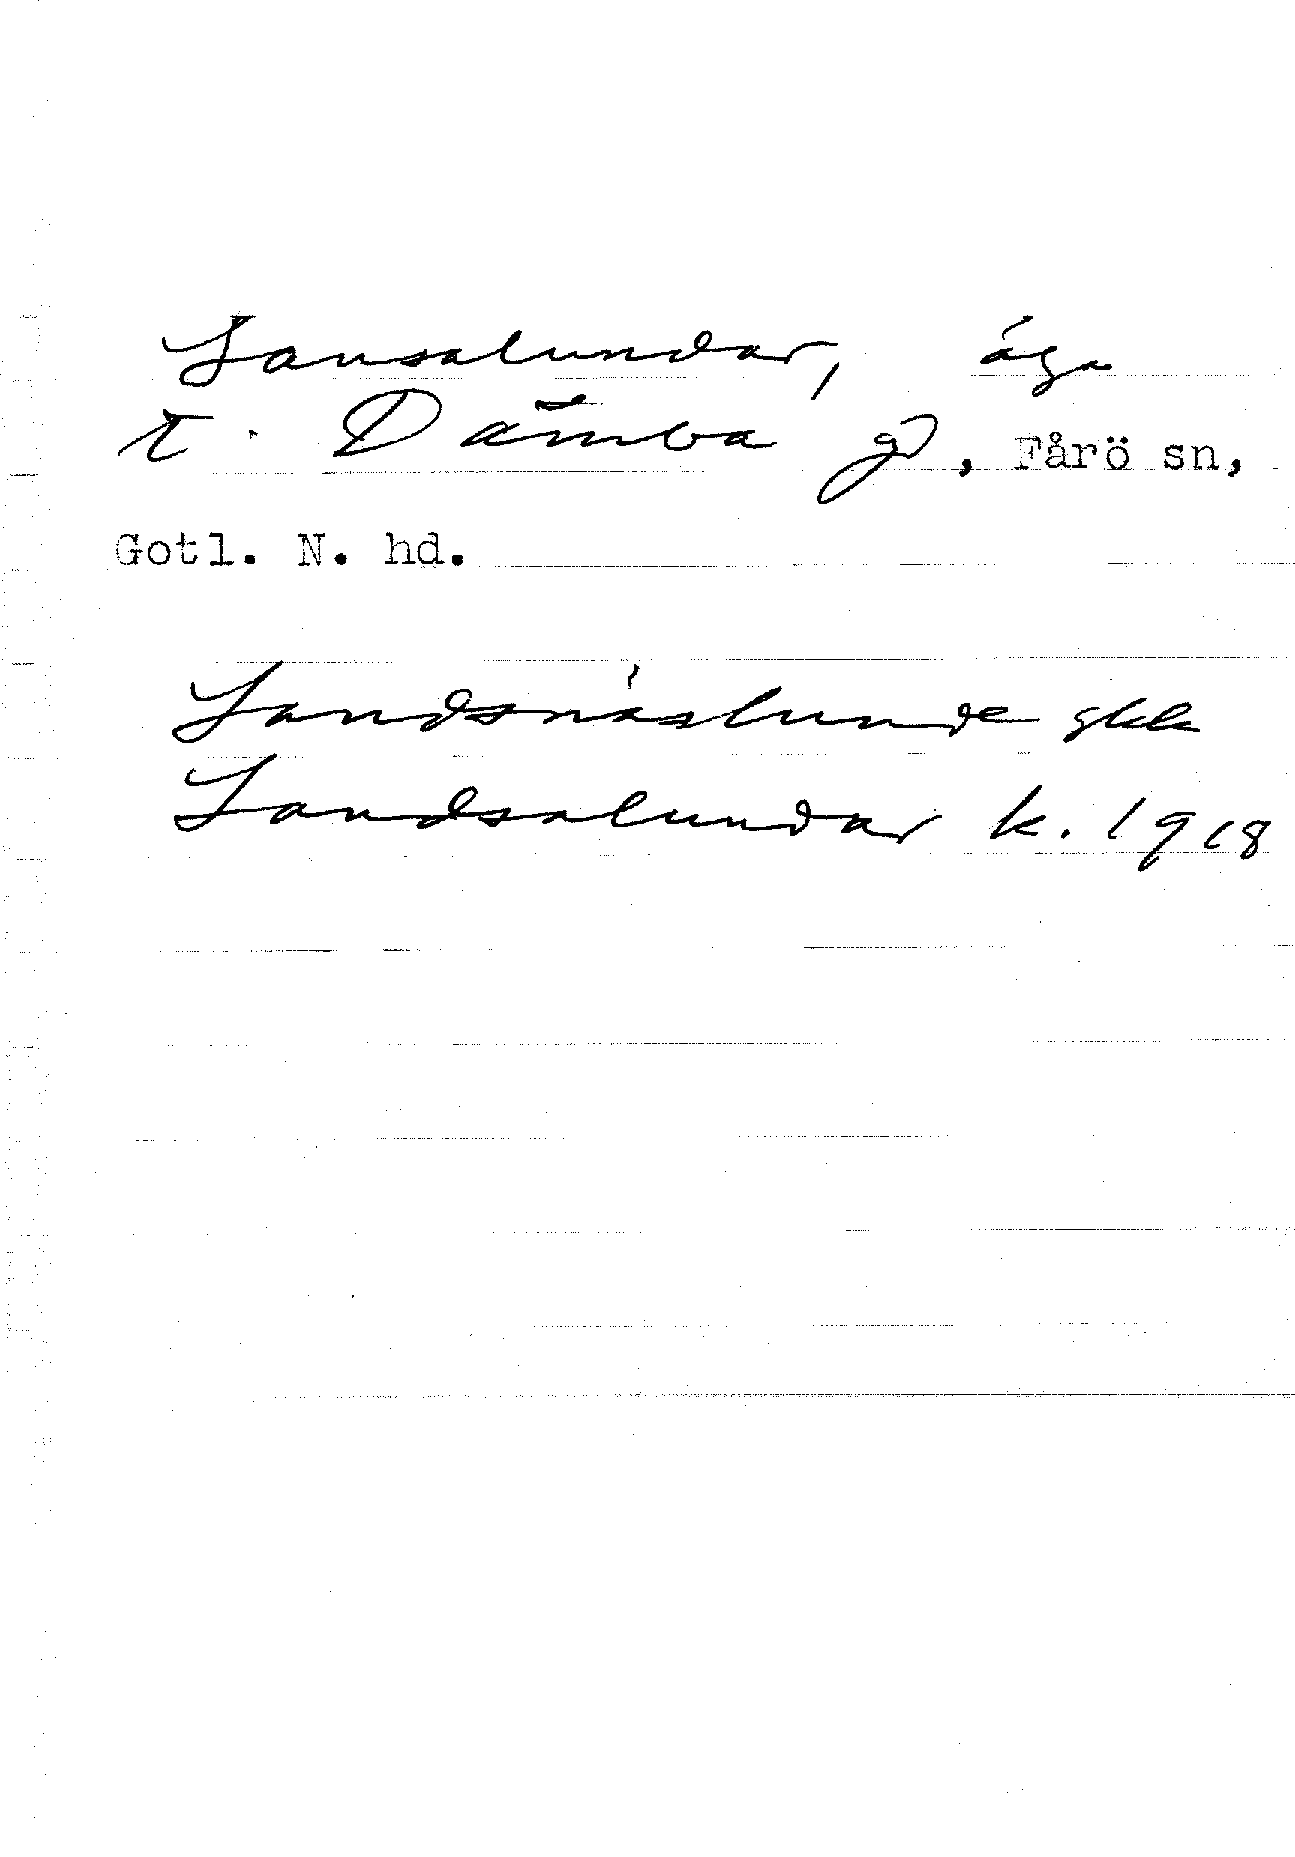 Lansalundar, äga
t. Dämba gd, Fårö sn,
Gotl. N. hd.
Landsnäslunde gkk
Landsalundar k. 1918